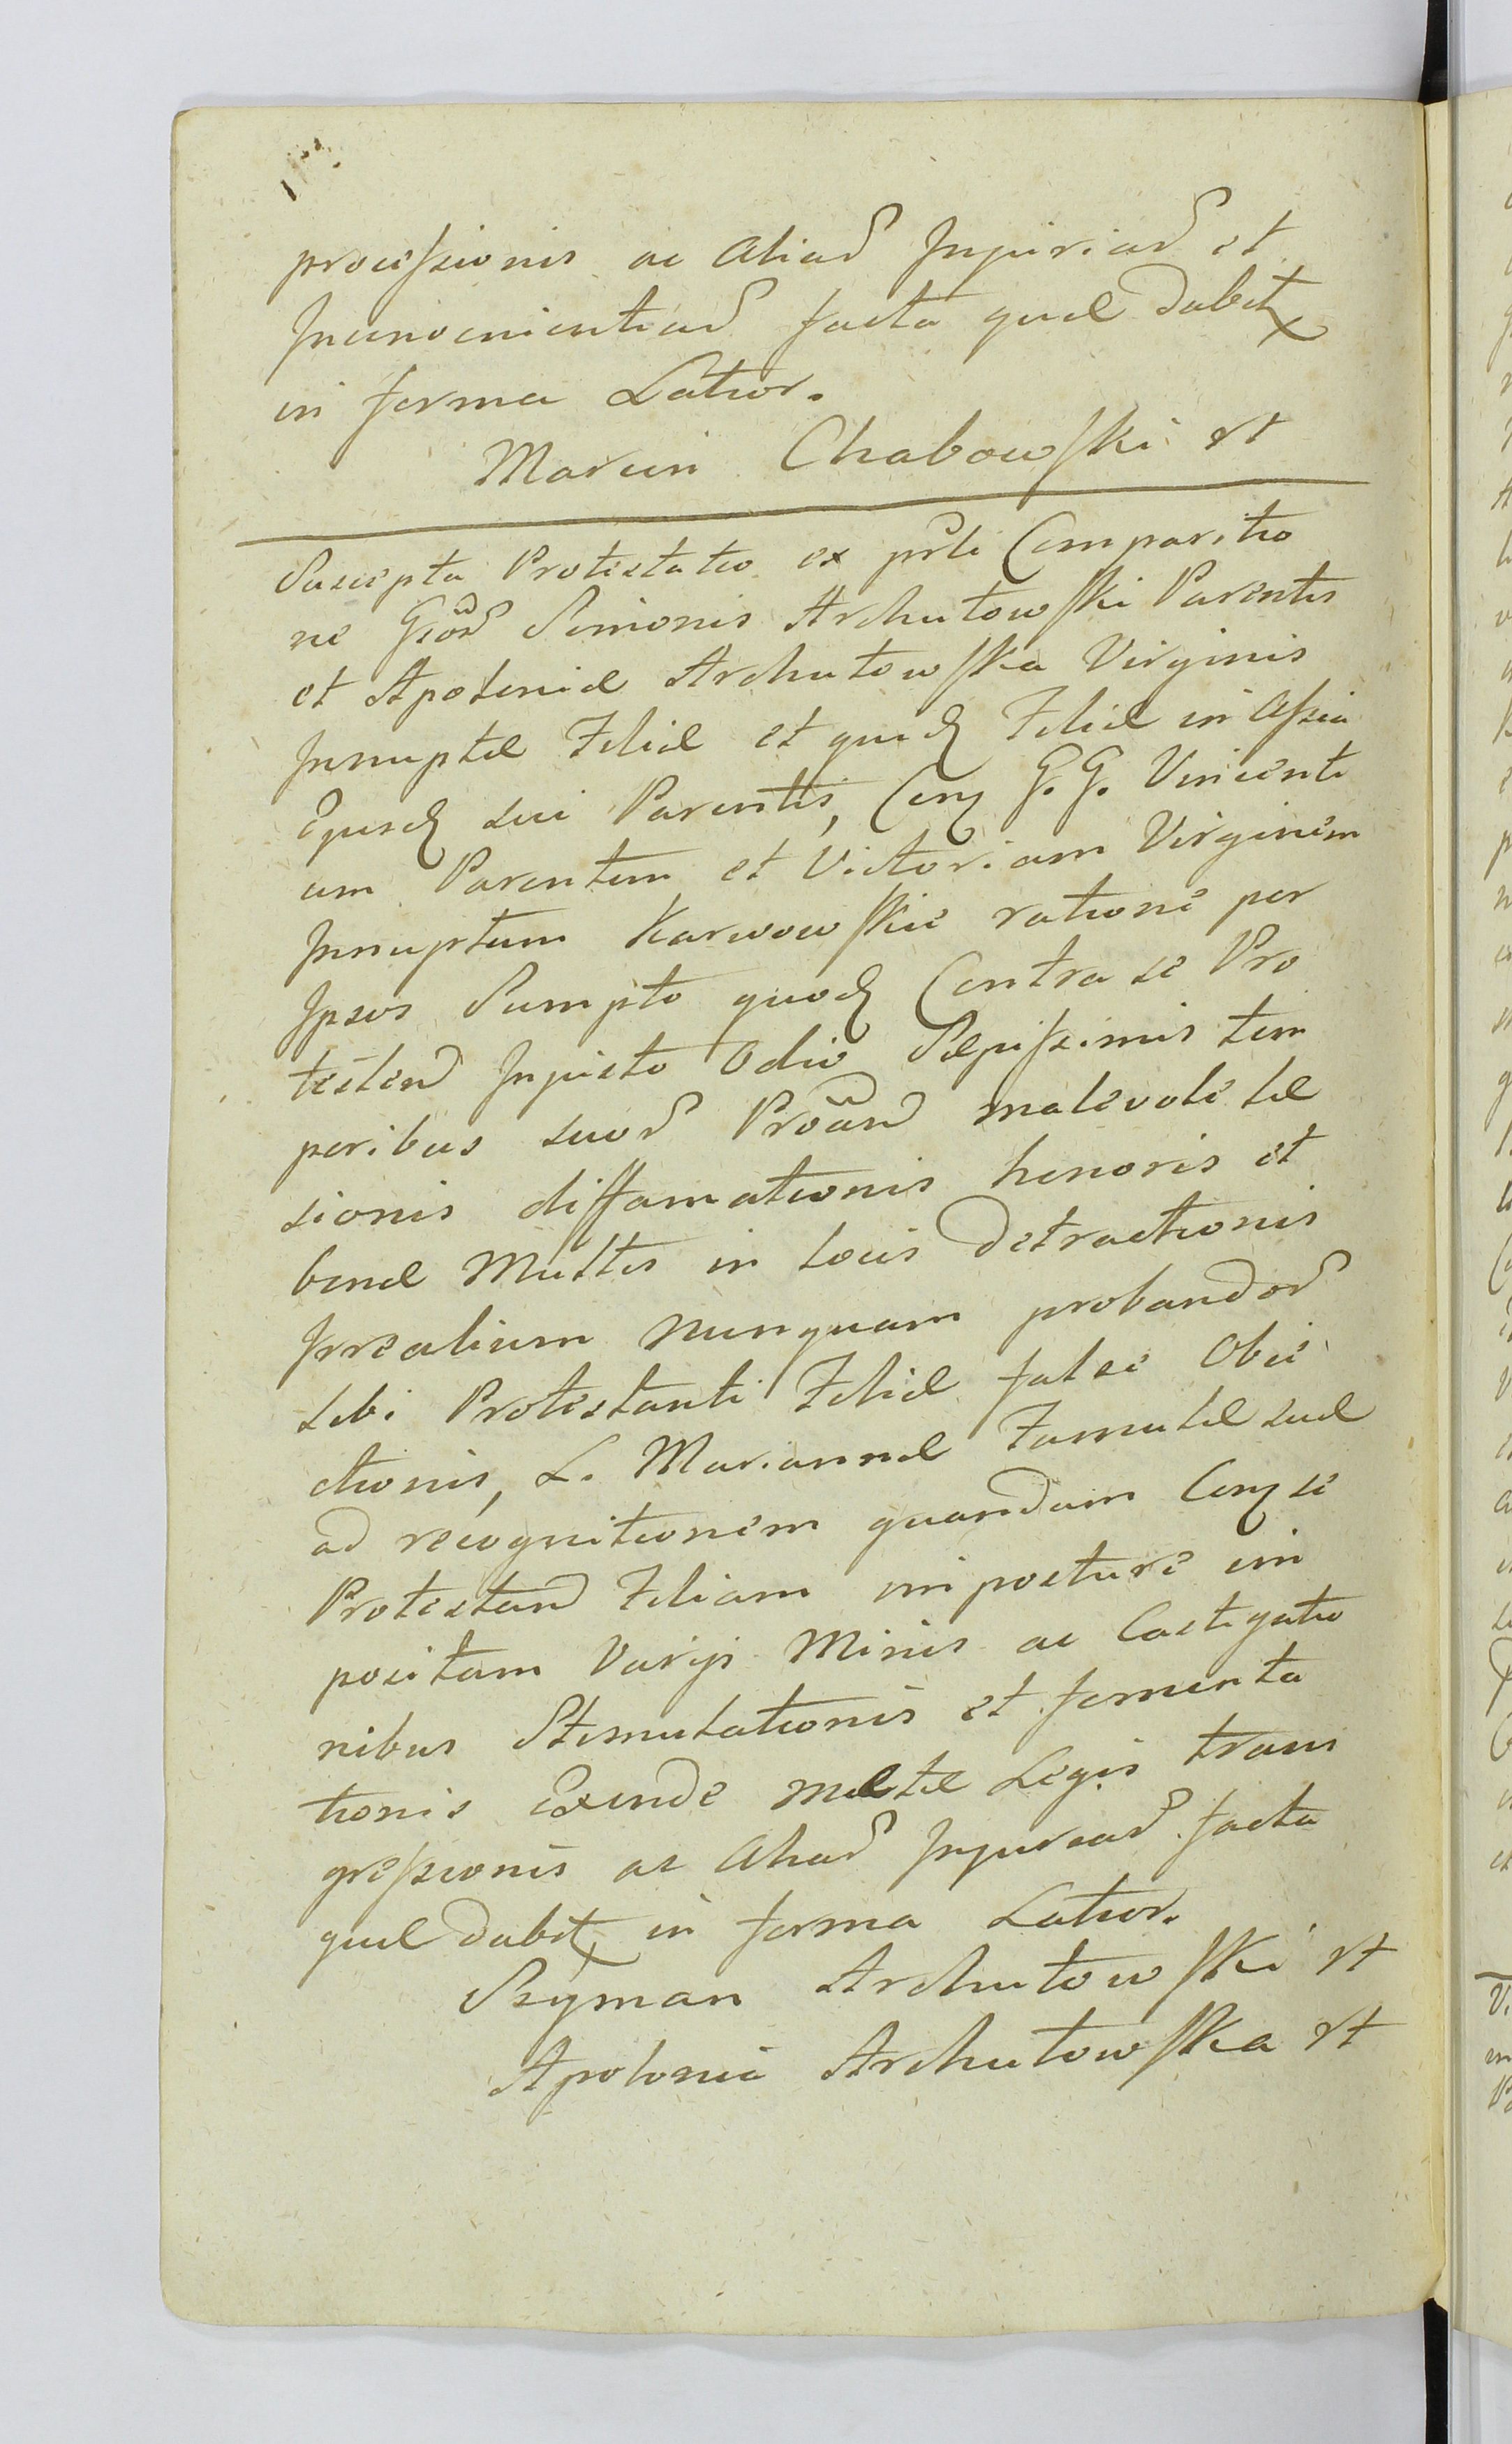 processionis ac aliarͬ Injuriarͬ et
Inconvenientiarͬ facta quæ dabitͬ
in forma Latior.
Marcin Chabowski rt
Suscepta Protestatio ex prͬti Comparitio
ne Grosͬ Simonis Archutowski Parentis
et Apoloniæ Archutowska Virginis
Innuptæ Filiæ et quidͫ Filiæ in Assia
Ejusdͫ sui Parentis, Conͫ G. G. Vincenti
um Parentem et Victoriam Virginem
Innuptam Karwowskie ratione per
Ipsos Sumpto quodͫ Contra se Pro
testenͩ Injusto Odio Sæpissimis tem
poribus suorͬ Proanͩ malevole læ
sionis diffamationis honoris et
bonæ Multis in locis Detractionis
Irrealium nunquam probandorͬ
sibi Protestanti Filiæ false Obie
ctionis, L. Mariannæ Famulæ suæ
ad recognitionem quandam Conͫ se
Protestanͩ Filiam imposture im
positam Varijs Minis ac Castigatio
nibus Stimulationis et fomenta
tionis Exinde mulctæ Legis trans
gressionis ac aliarͬ Injuriarͬ facta
quæ dabitͬ in forma Latior.
Szÿman Archutowski rt
Apolonia Archutowska rt